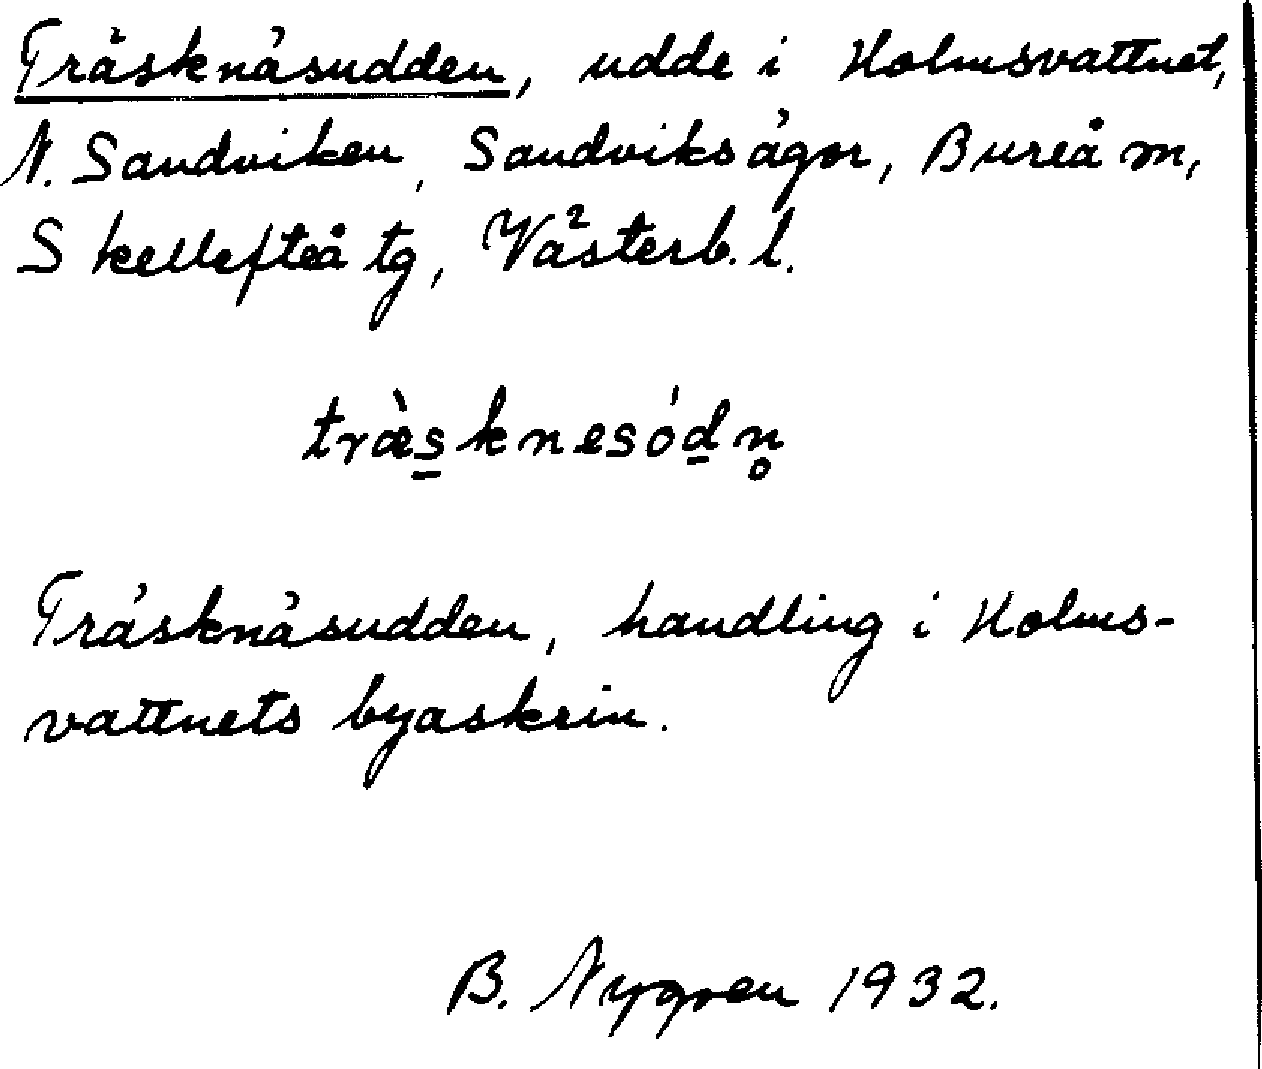 Träsknäsudden, udde i Holmsvattnet,
N. Sandviken, Sandviksågor, Bureå m,
Skellefteå tg, Västerb. l.
træ̀s̲knesód̲n̥
Träsknäsudden, handling i Holms-
vattnets byaskrin.
B. Nygren 1932.